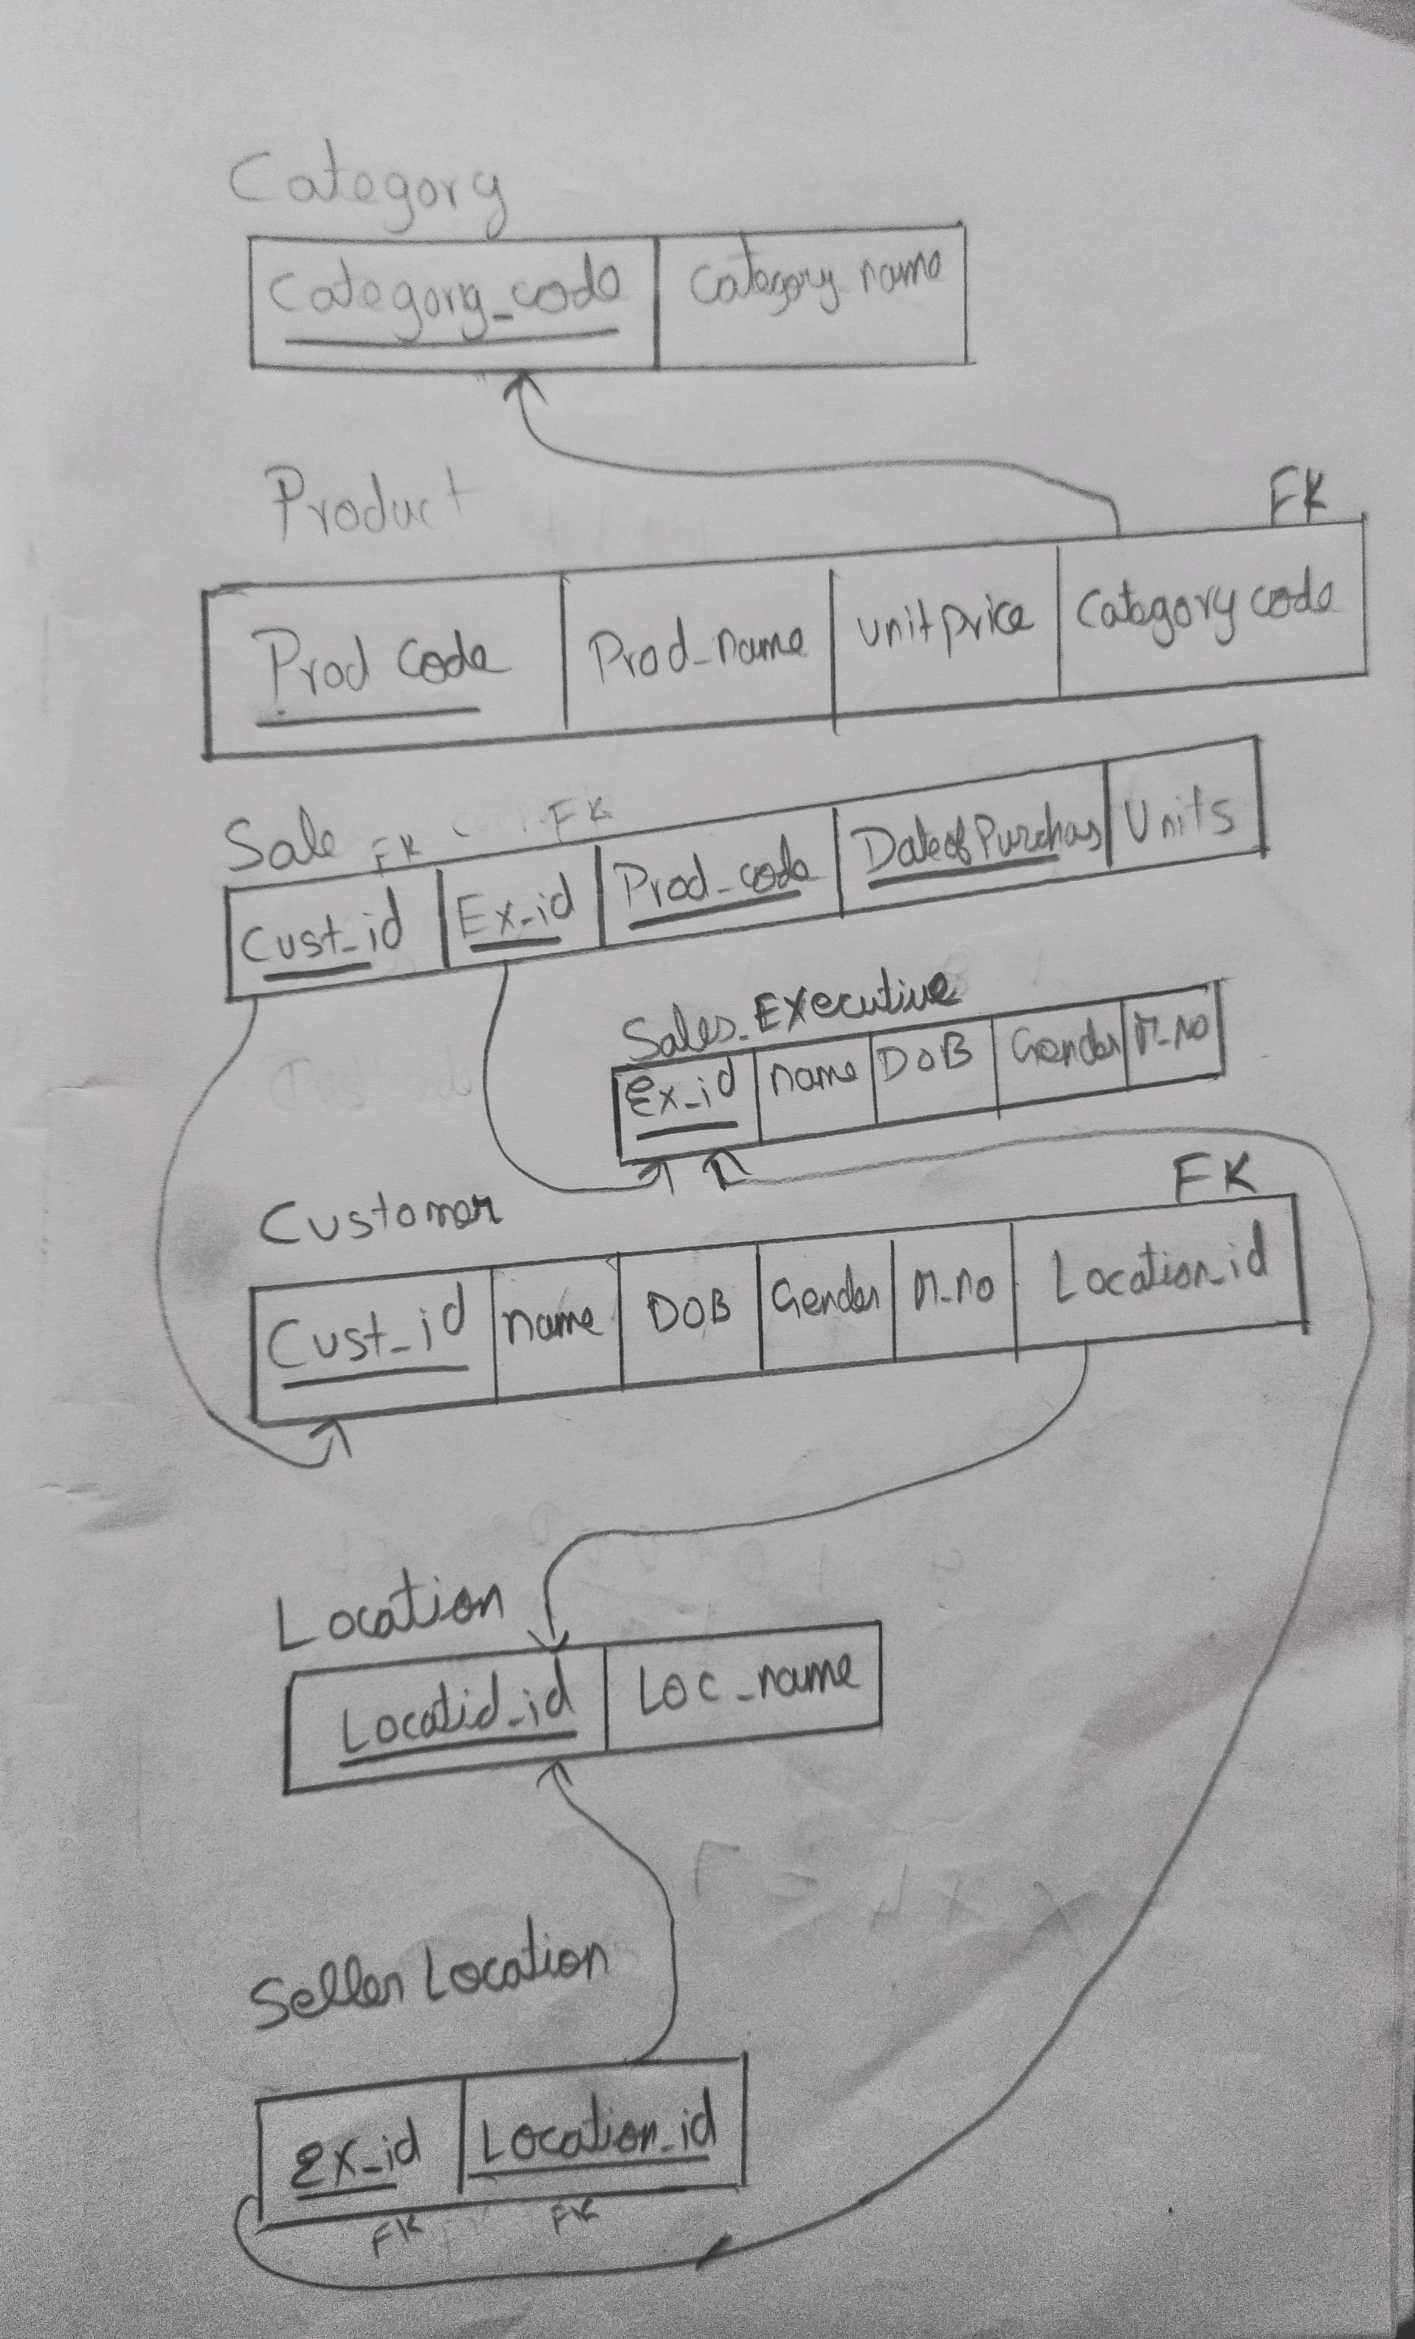 Category
Category_code Category name
Product
FK
Prod Code Prod_name unitprice Category code
Sale FK FK
Cust_id Ex_id Prod_code DateofPurchas Units
Sales_Executive
Ex_id name DOB Gender M_no
Customer
FK
Cust_id name DOB Gender M_no Location_id
Location
Locatid_id Loc_name
Seller Location
Ex_id Location_id
FK FK